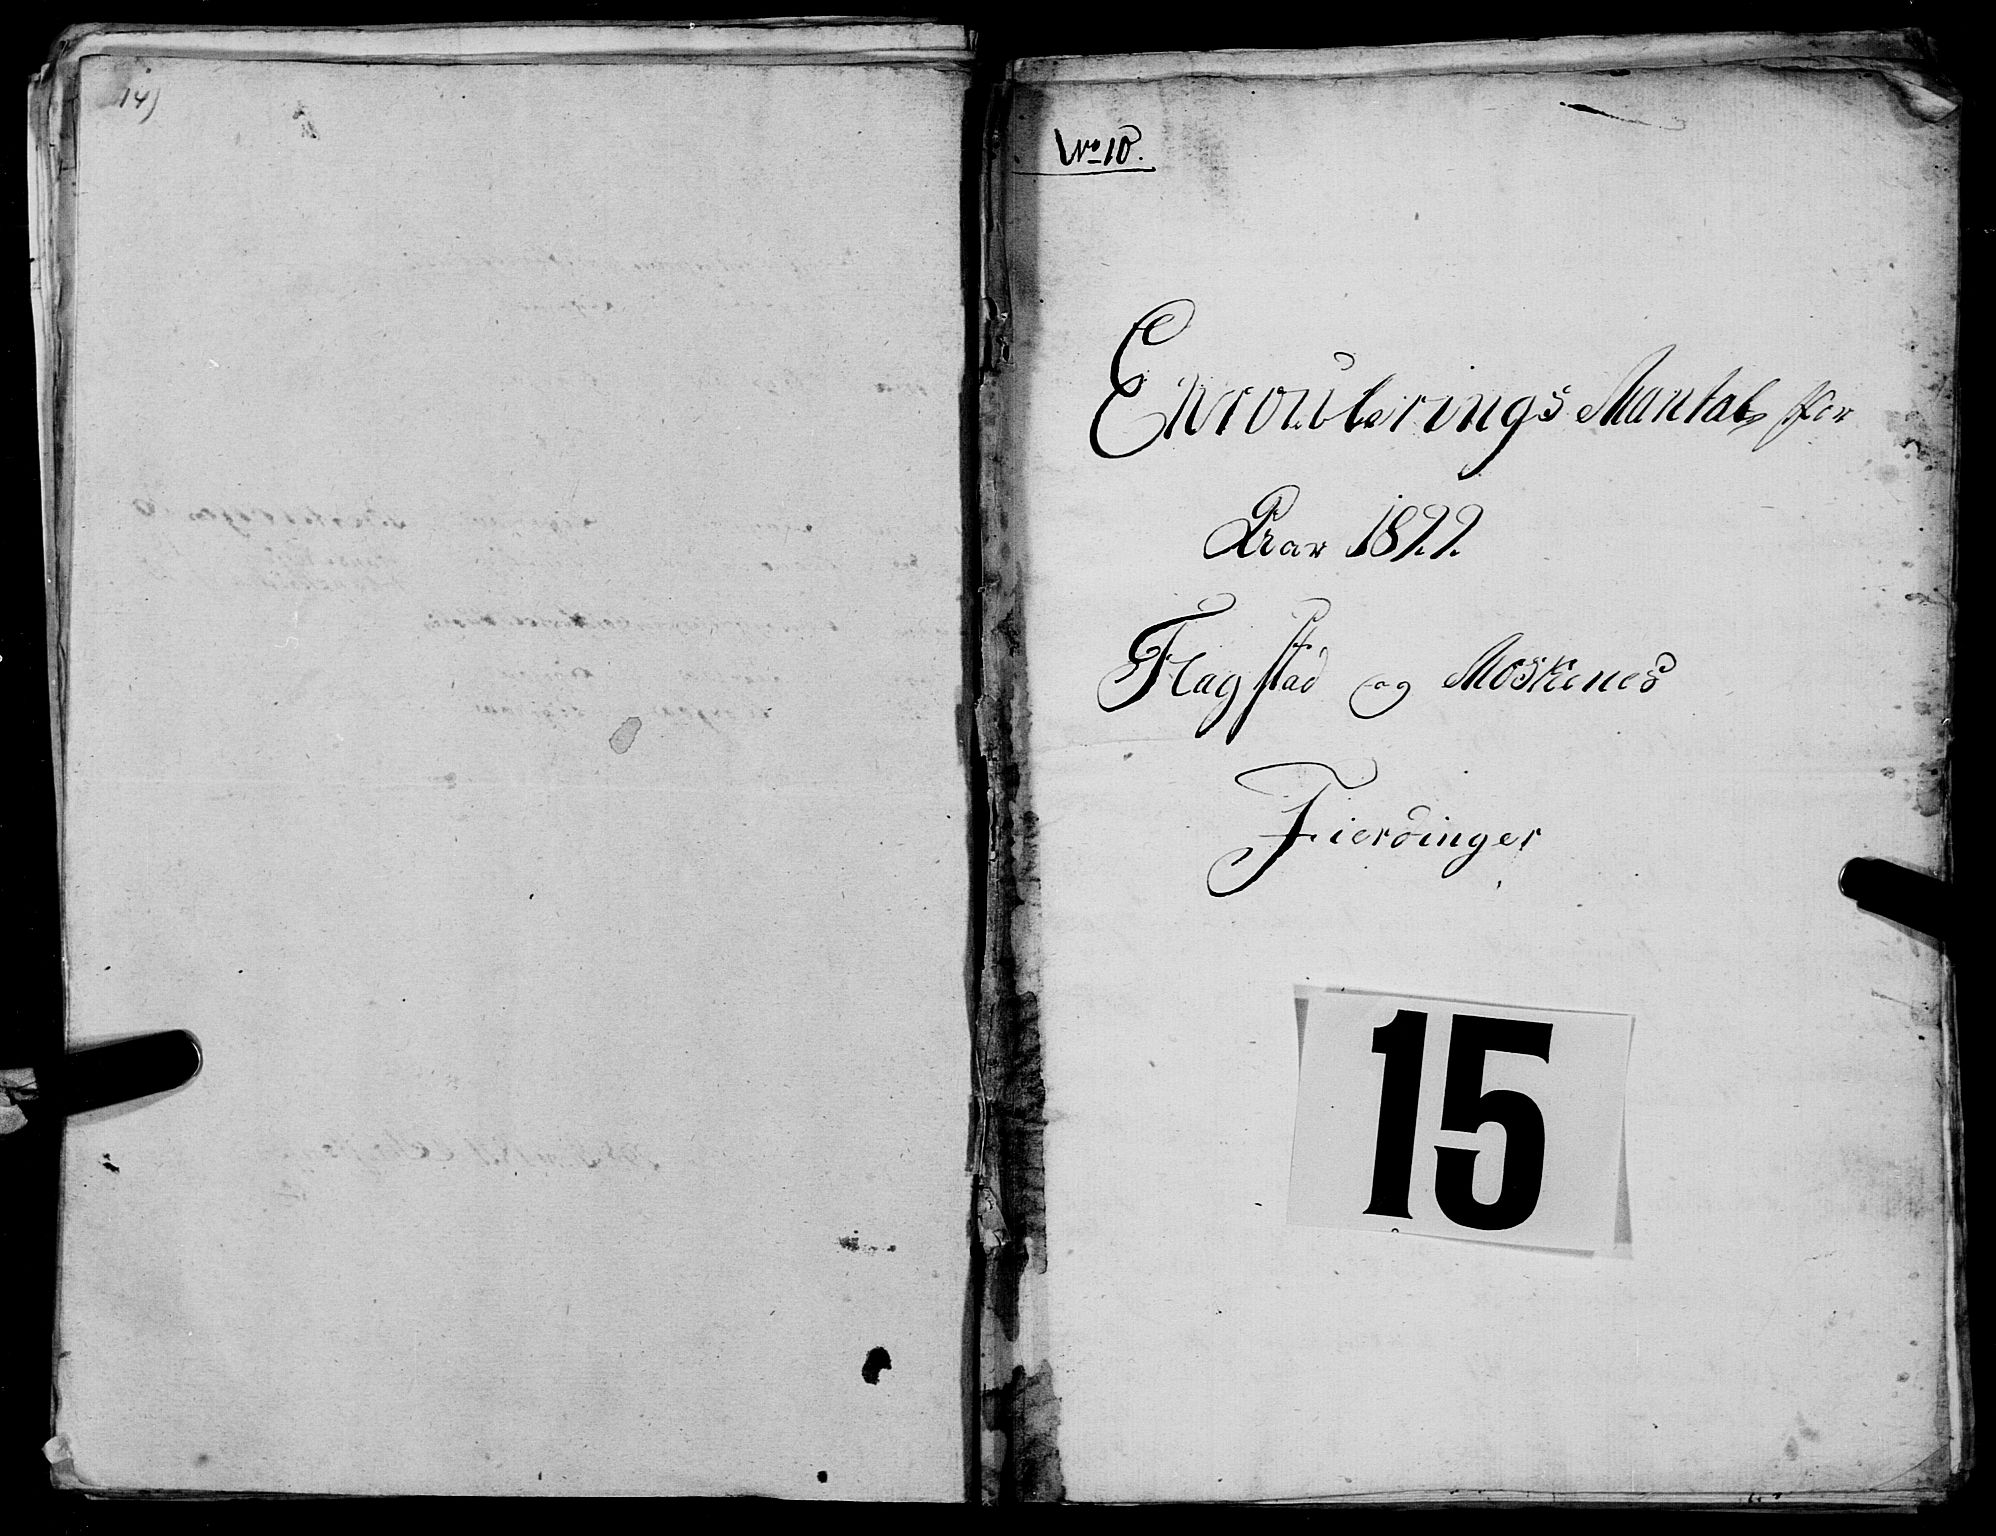 14)
No 10.
Enroulerings Mantal for
Aar 1822
Flagstad og Moskenes
Fierdinger
15